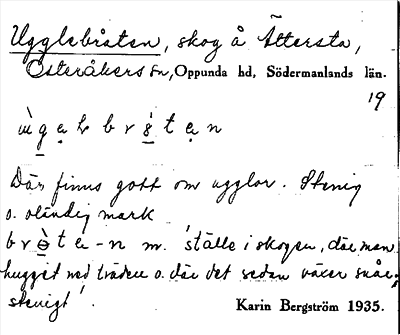 Ugglebråten, skog å Ättersta,
Österåkers sn, Oppunda hd, Södermanlands län.
19
Där finns gott om ugglor. Stenig
o. oländig mark
m. 'ställe i skogen, där man
huggit ned träden o. där det sedan växer snår;
stenigt'.
Karin Bergström 1935.